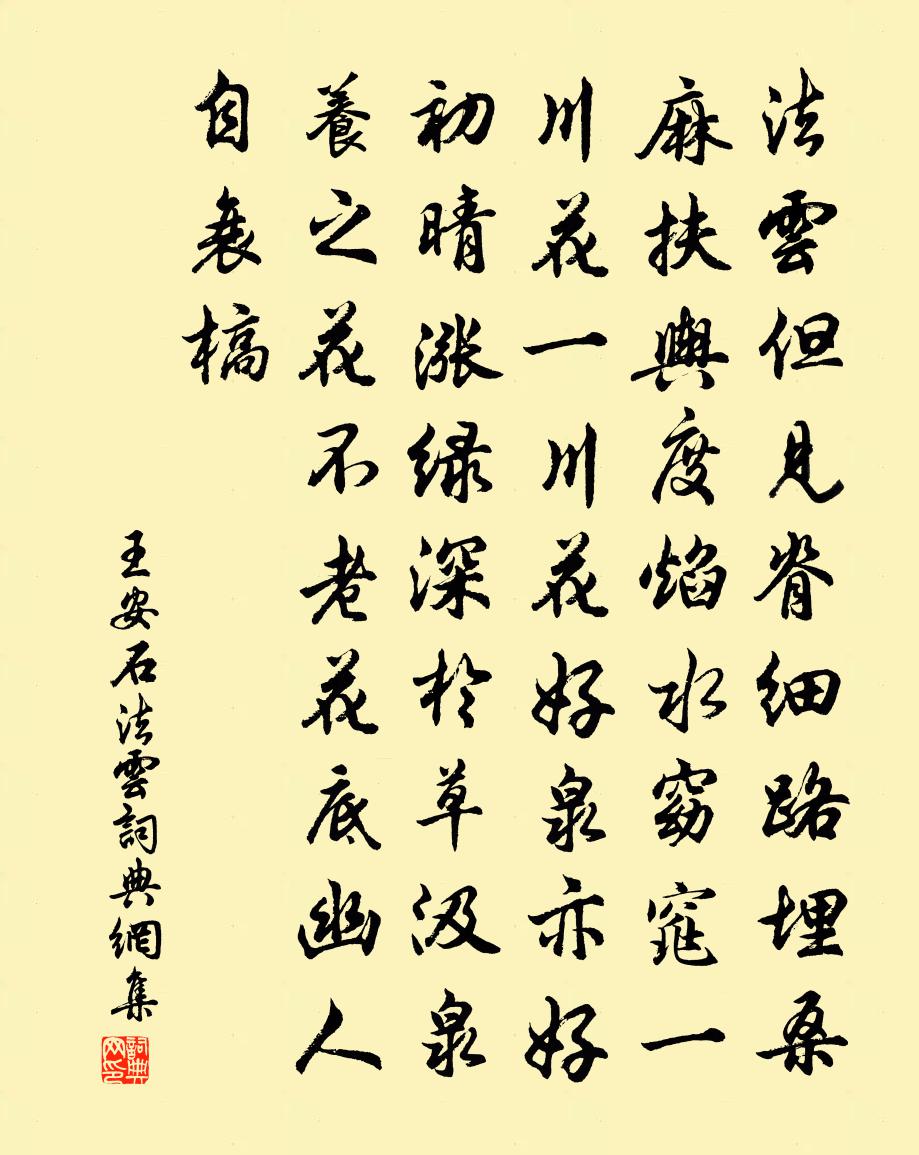 法雲但見脊細路埋桑
麻扶輿度焰水窈窕一
川花一川花好泉亦好
初晴漲緑深於草汲泉
養之花不老花底幽人
自衰槁
王安石法雲詞典網集
詞典网印